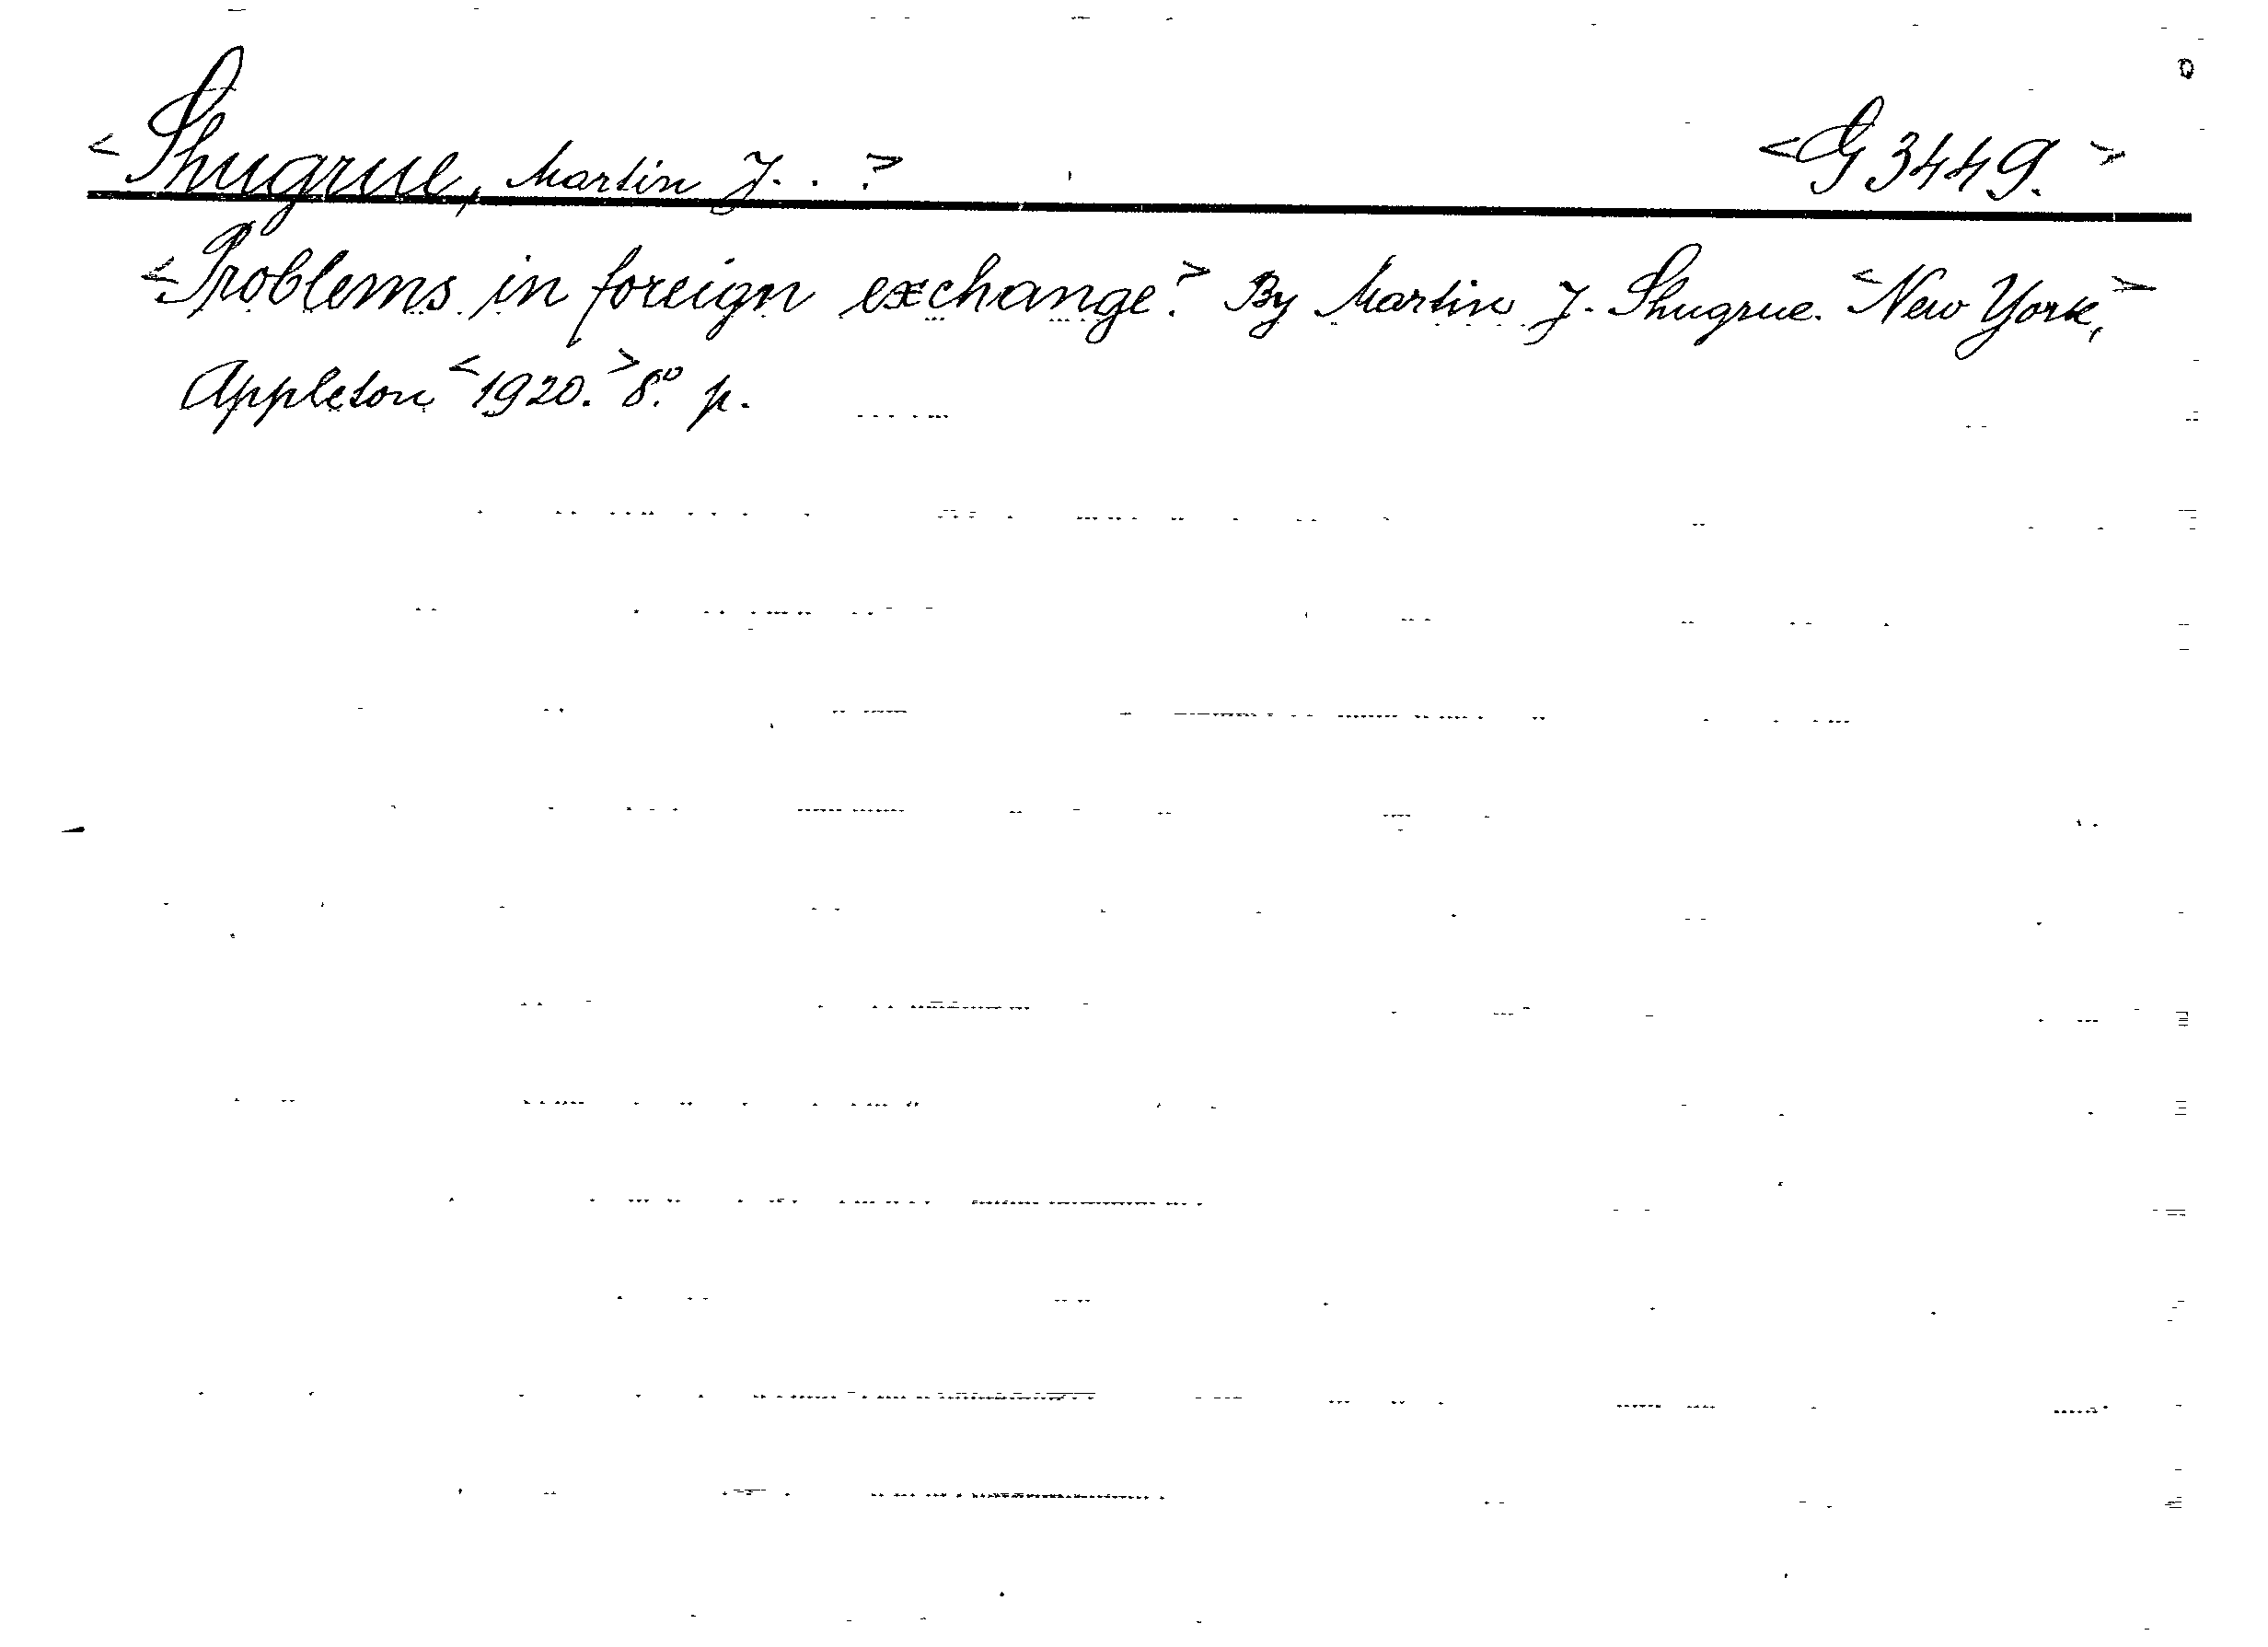 <Shugrue, Martin J. . .> <G 3449.>
<Problems in foreign exchange.> By Martin J. Shugrue. <New York,>
Appleton <1920.> 8.° p.